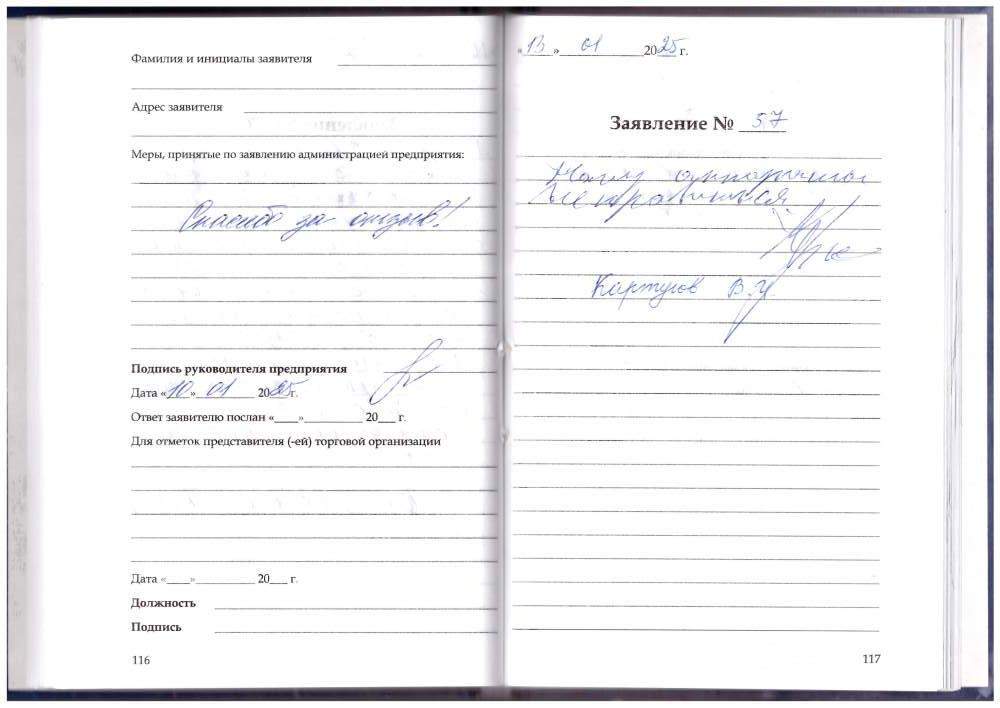 Фамилия и инициалы заявителя
Адрес заявителя
Меры, принятые по заявлению администрацией предприятия:
Спасибо за отзыв!
Подпись руководителя предприятия
Дата «10» 01 2025г.
Ответ заявителю послан «____»__________ 20___ г.
Для отметок представителя (-ей) торговой организации
Дата «____»__________ 20___ г.
Должность
Подпись
116
«13» 01 2025г.
Заявление № 57
Картузов В.И.
117